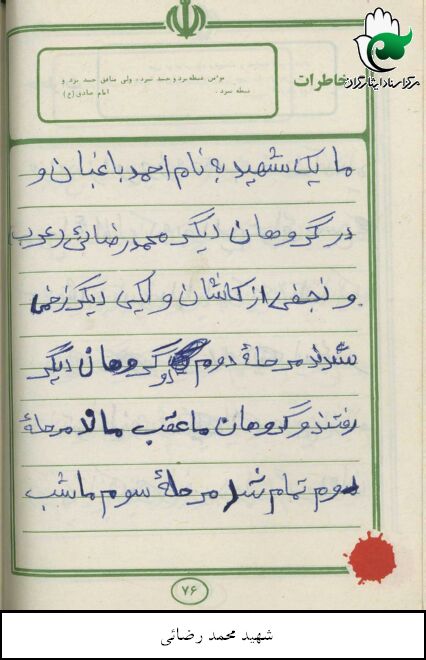 خاطرات
مرکز اسناد ایثارگران
مومن غبطه برد و حسد نبرد، ولی منافق حسد برد و
غبطه نبرد. امام صادق (ع)
ما یک شهید به نام احمد باغبان و
در گروهان دیگر محمد رضائی (عرب)
و نجفی از کاشان و یکی دیگر زخمی
شدند مرحلهٔ دوم دو گروهان دیگر
رفتند و گروهان ما عقب ماند مرحلهٔ
دوم تمام شد مرحلهٔ سوم ما شب
۷۶
شهید محمد رضائی